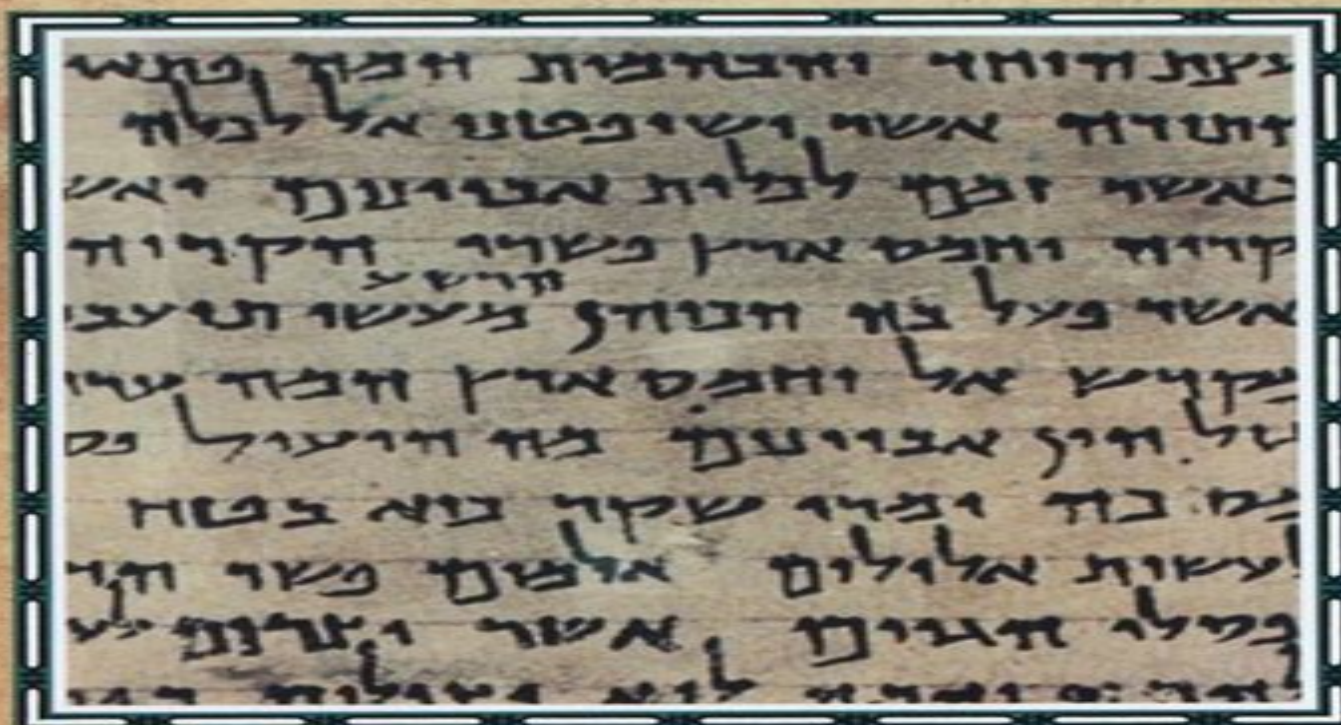 עצת היחד והבהמות המה פתאי
התורה אשר ישופטנו אל לכלה
כאשר זמם לכלות אביונים ואש
קריה וחמס ארץ פשרו הקריה
הרשע
אשר פעל בה הכוהן מעשי תועב
מקדש אל וחמס ארץ המה ערי
הון אביונים מה הועיל פס
ומרי שקר כיא בטח
לעשות אלילים אלמים פשר הד
פסלי הגוים אשר יצרום לע
והמה לוא יצילום